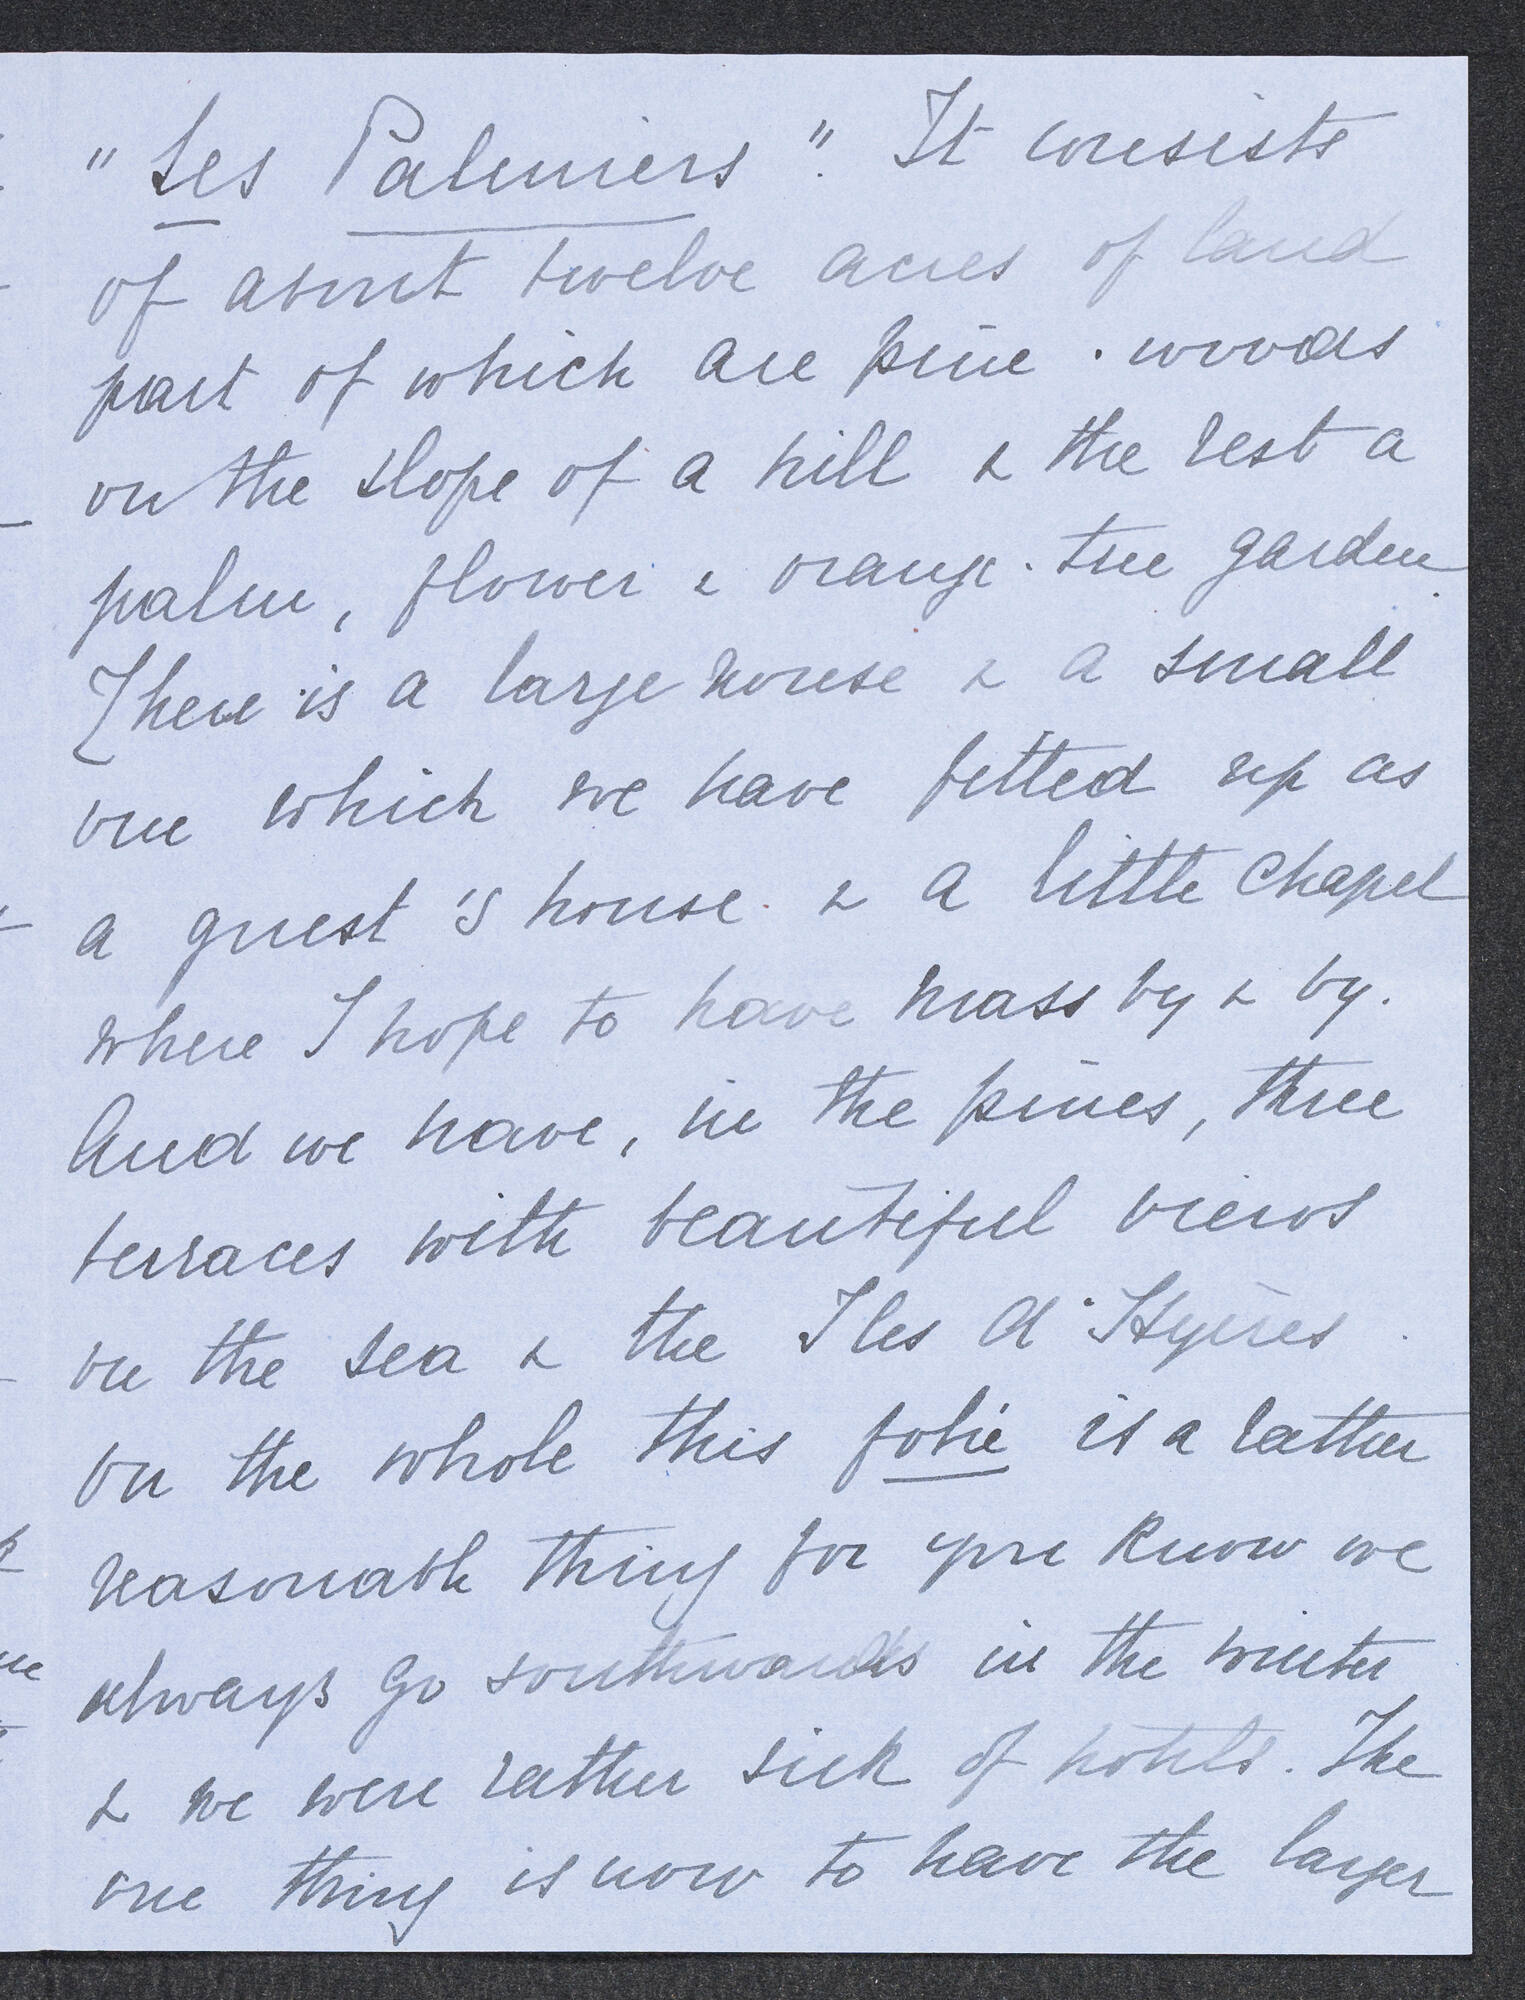 " Les Palmiers". It consists
of about twelve acres of land
part of which are pine-woods
on the slope of a hill & the rest a
palm, flower & orange-tree garden.
There is a large house & a small
one which we have fitted up as
a guest's house & a little chapel
where I hope to have mass by & by.
And we have, in the pines, three
terraces with beautiful views
on the sea & the Iles d'Hyères.
On the whole this folie is a rather
reasonable thing for you know we
always go southwards in the winter
& we were rather sick of hotels. The
one thing is now to have the larger